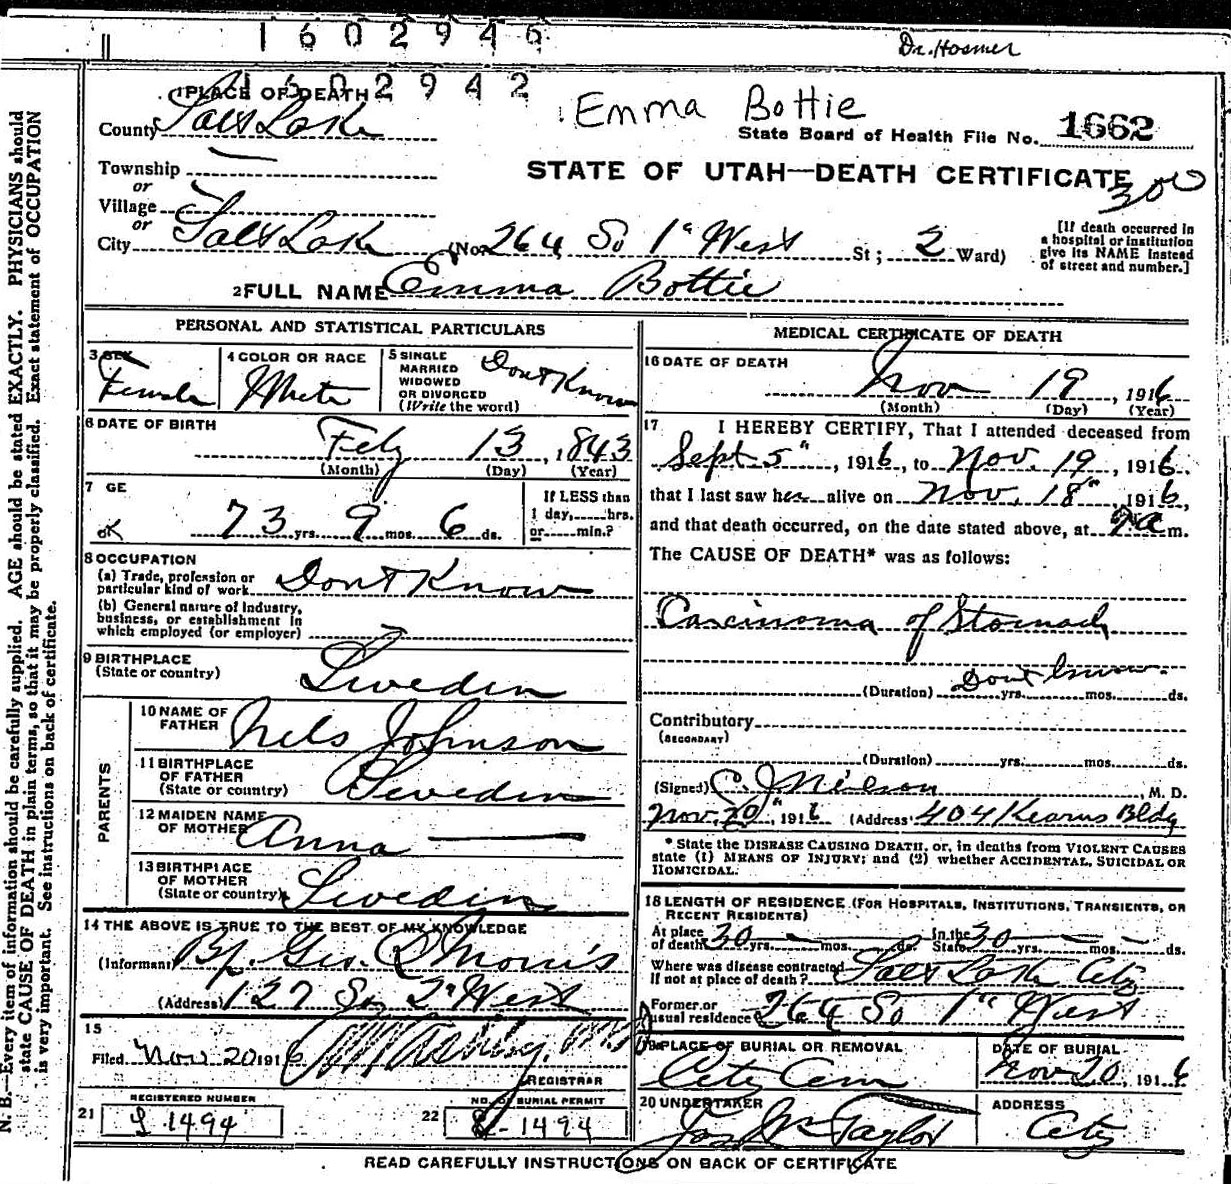 1602946
Dr. Hosmer
1602942
1 PLACE OF DEATH
Emma Bottie
County Salt Lake
State Board of Health File No. 1662
Township —
or
STATE OF UTAH—DEATH CERTIFICATE
300
Village
or
City Salt Lake (No. 264 So 1" West St; 2 Ward)
[If death occurred in
a hospital or institution
give its NAME instead
of street and number.]
2 FULL NAME Emma Bottie
PERSONAL AND STATISTICAL PARTICULARS
3 SEX
Female
4 COLOR OR RACE
White
5 SINGLE
MARRIED
WIDOWED
OR DIVORCED
(Write the word)
Dont Know
6 DATE OF BIRTH
Feby 13, 1843
(Month) (Day) (Year)
7 GE
OK
73 yrs. 9 mos. 6 ds.
If LESS than
1 day, hrs.
or min.?
8 OCCUPATION
(a) Trade, profession or
particular kind of work Dont Know
(b) General nature of Industry,
business, or establishment in
which employed (or employer)
9 BIRTHPLACE
(State or country) Sweden
PARENTS
10 NAME OF
FATHER Nels Johnson
11 BIRTHPLACE
OF FATHER
(State or country) Sweden
12 MAIDEN NAME
OF MOTHER Anna —
13 BIRTHPLACE
OF MOTHER
(State or country) Sweden
14 THE ABOVE IS TRUE TO THE BEST OF MY KNOWLEDGE
(Informant Bp. Geo. R Morris
(Address) 127 So 2" West
15
Filed Nov 20 1916
REGISTRAR
REGISTERED NUMBER
21 1494
NO. OF BURIAL PERMIT
22 1494
MEDICAL CERTIFICATE OF DEATH
16 DATE OF DEATH
Nov 19, 1916
(Month) (Day) (Year)
17 I HEREBY CERTIFY, That I attended deceased from
Sept. 5", 1916, to Nov. 19, 1916.
that I last saw her alive on Nov. 18", 1916,
and that death occurred, on the date stated above, at 9 a m.
The CAUSE OF DEATH* was as follows:
Carcinoma of Stomach
(Duration) Dont know yrs. mos. ds.
Contributory
(SECONDARY)
(Duration) yrs. mos. ds.
(Signed) C. J Neilson, M. D.
Nov. 20", 1916 (Address) 404 Kearns Bldg
* State the DISEASE CAUSING DEATH, or, in deaths from VIOLENT CAUSES
state (1) MEANS OF INJURY; and (2) whether ACCIDENTAL, SUICIDAL OR
HOMICIDAL.
18 LENGTH OF RESIDENCE (FOR HOSPITALS, INSTITUTIONS, TRANSIENTS, OR
RECENT RESIDENTS)
At place
of death 30 yrs. — mos. ds. In the State 30 yrs. — mos. — ds.
Where was disease contracted
if not at place of death? Salt Lake City
Former or
usual residence 264 So 1" West
19 PLACE OF BURIAL OR REMOVAL
City Cem
DATE OF BURIAL
Nov 20, 1916
20 UNDERTAKER
Jos Wm Taylor
ADDRESS
City
READ CAREFULLY INSTRUCTIONS ON BACK OF CERTIFICATE
N. B.—Every item of information should be carefully supplied. AGE should be stated EXACTLY. PHYSICIANS should
state CAUSE OF DEATH in plain terms, so that it may be properly classified. Exact statement of OCCUPATION
is very important. See instructions on back of certificate.